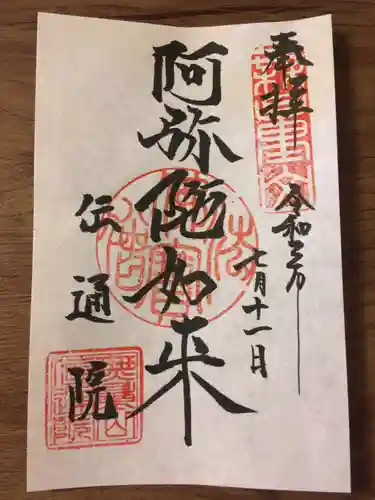 奉拝
令和
七月十一日
阿弥陀如来
伝通院